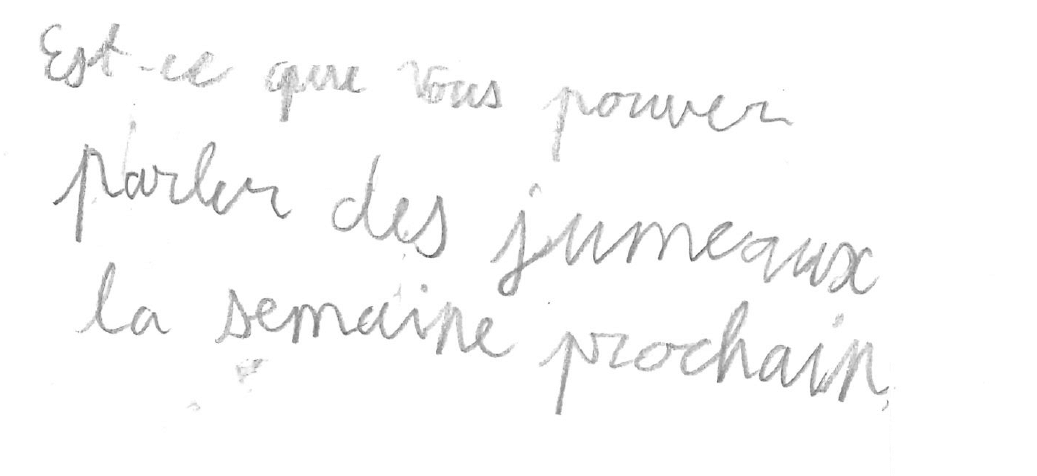 Est-ce que vous pouver
parler des jumeaux
la semaine prochain.